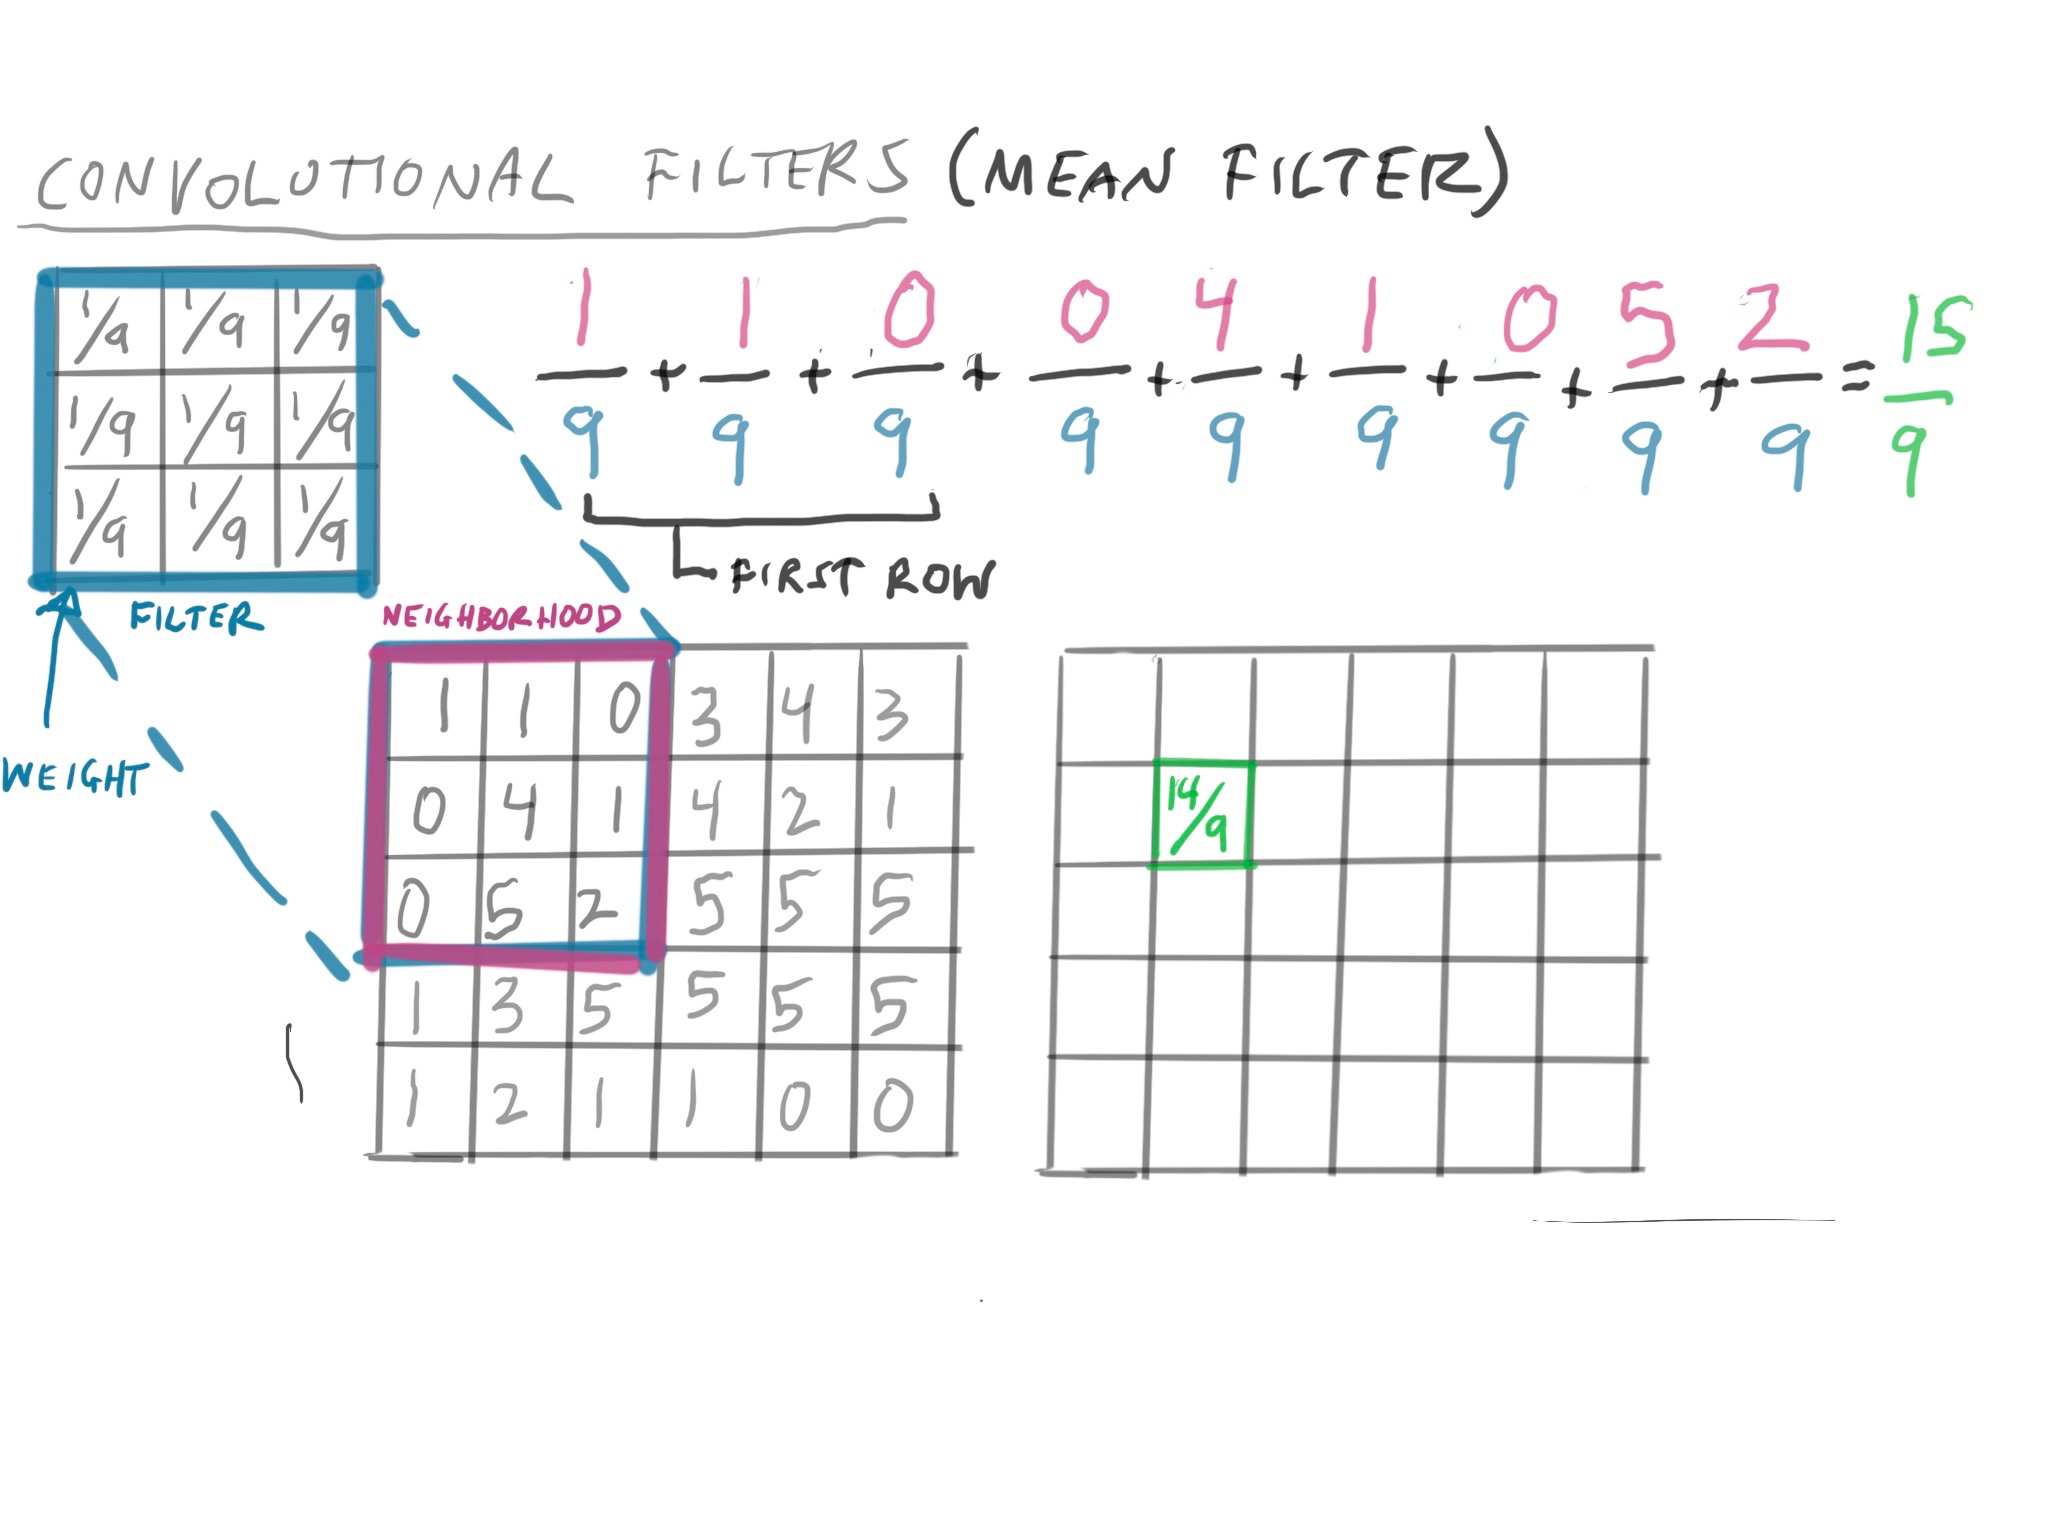 CONVOLUTIONAL FILTERS (MEAN FILTER)
1/9 1/9 1/9
1/9 1/9 1/9
1/9 1/9 1/9
1/9 + 1/9 + 0/9 + 0/9 + 4/9 + 1/9 + 0/9 + 5/9 + 2/9 = 15/9
FIRST ROW
FILTER
WEIGHT
NEIGHBORHOOD
1 1 0 3 4 3
0 4 1 4 2 1
0 5 2 5 5 5
1 3 5 5 5 5
1 2 1 1 0 0
14/9